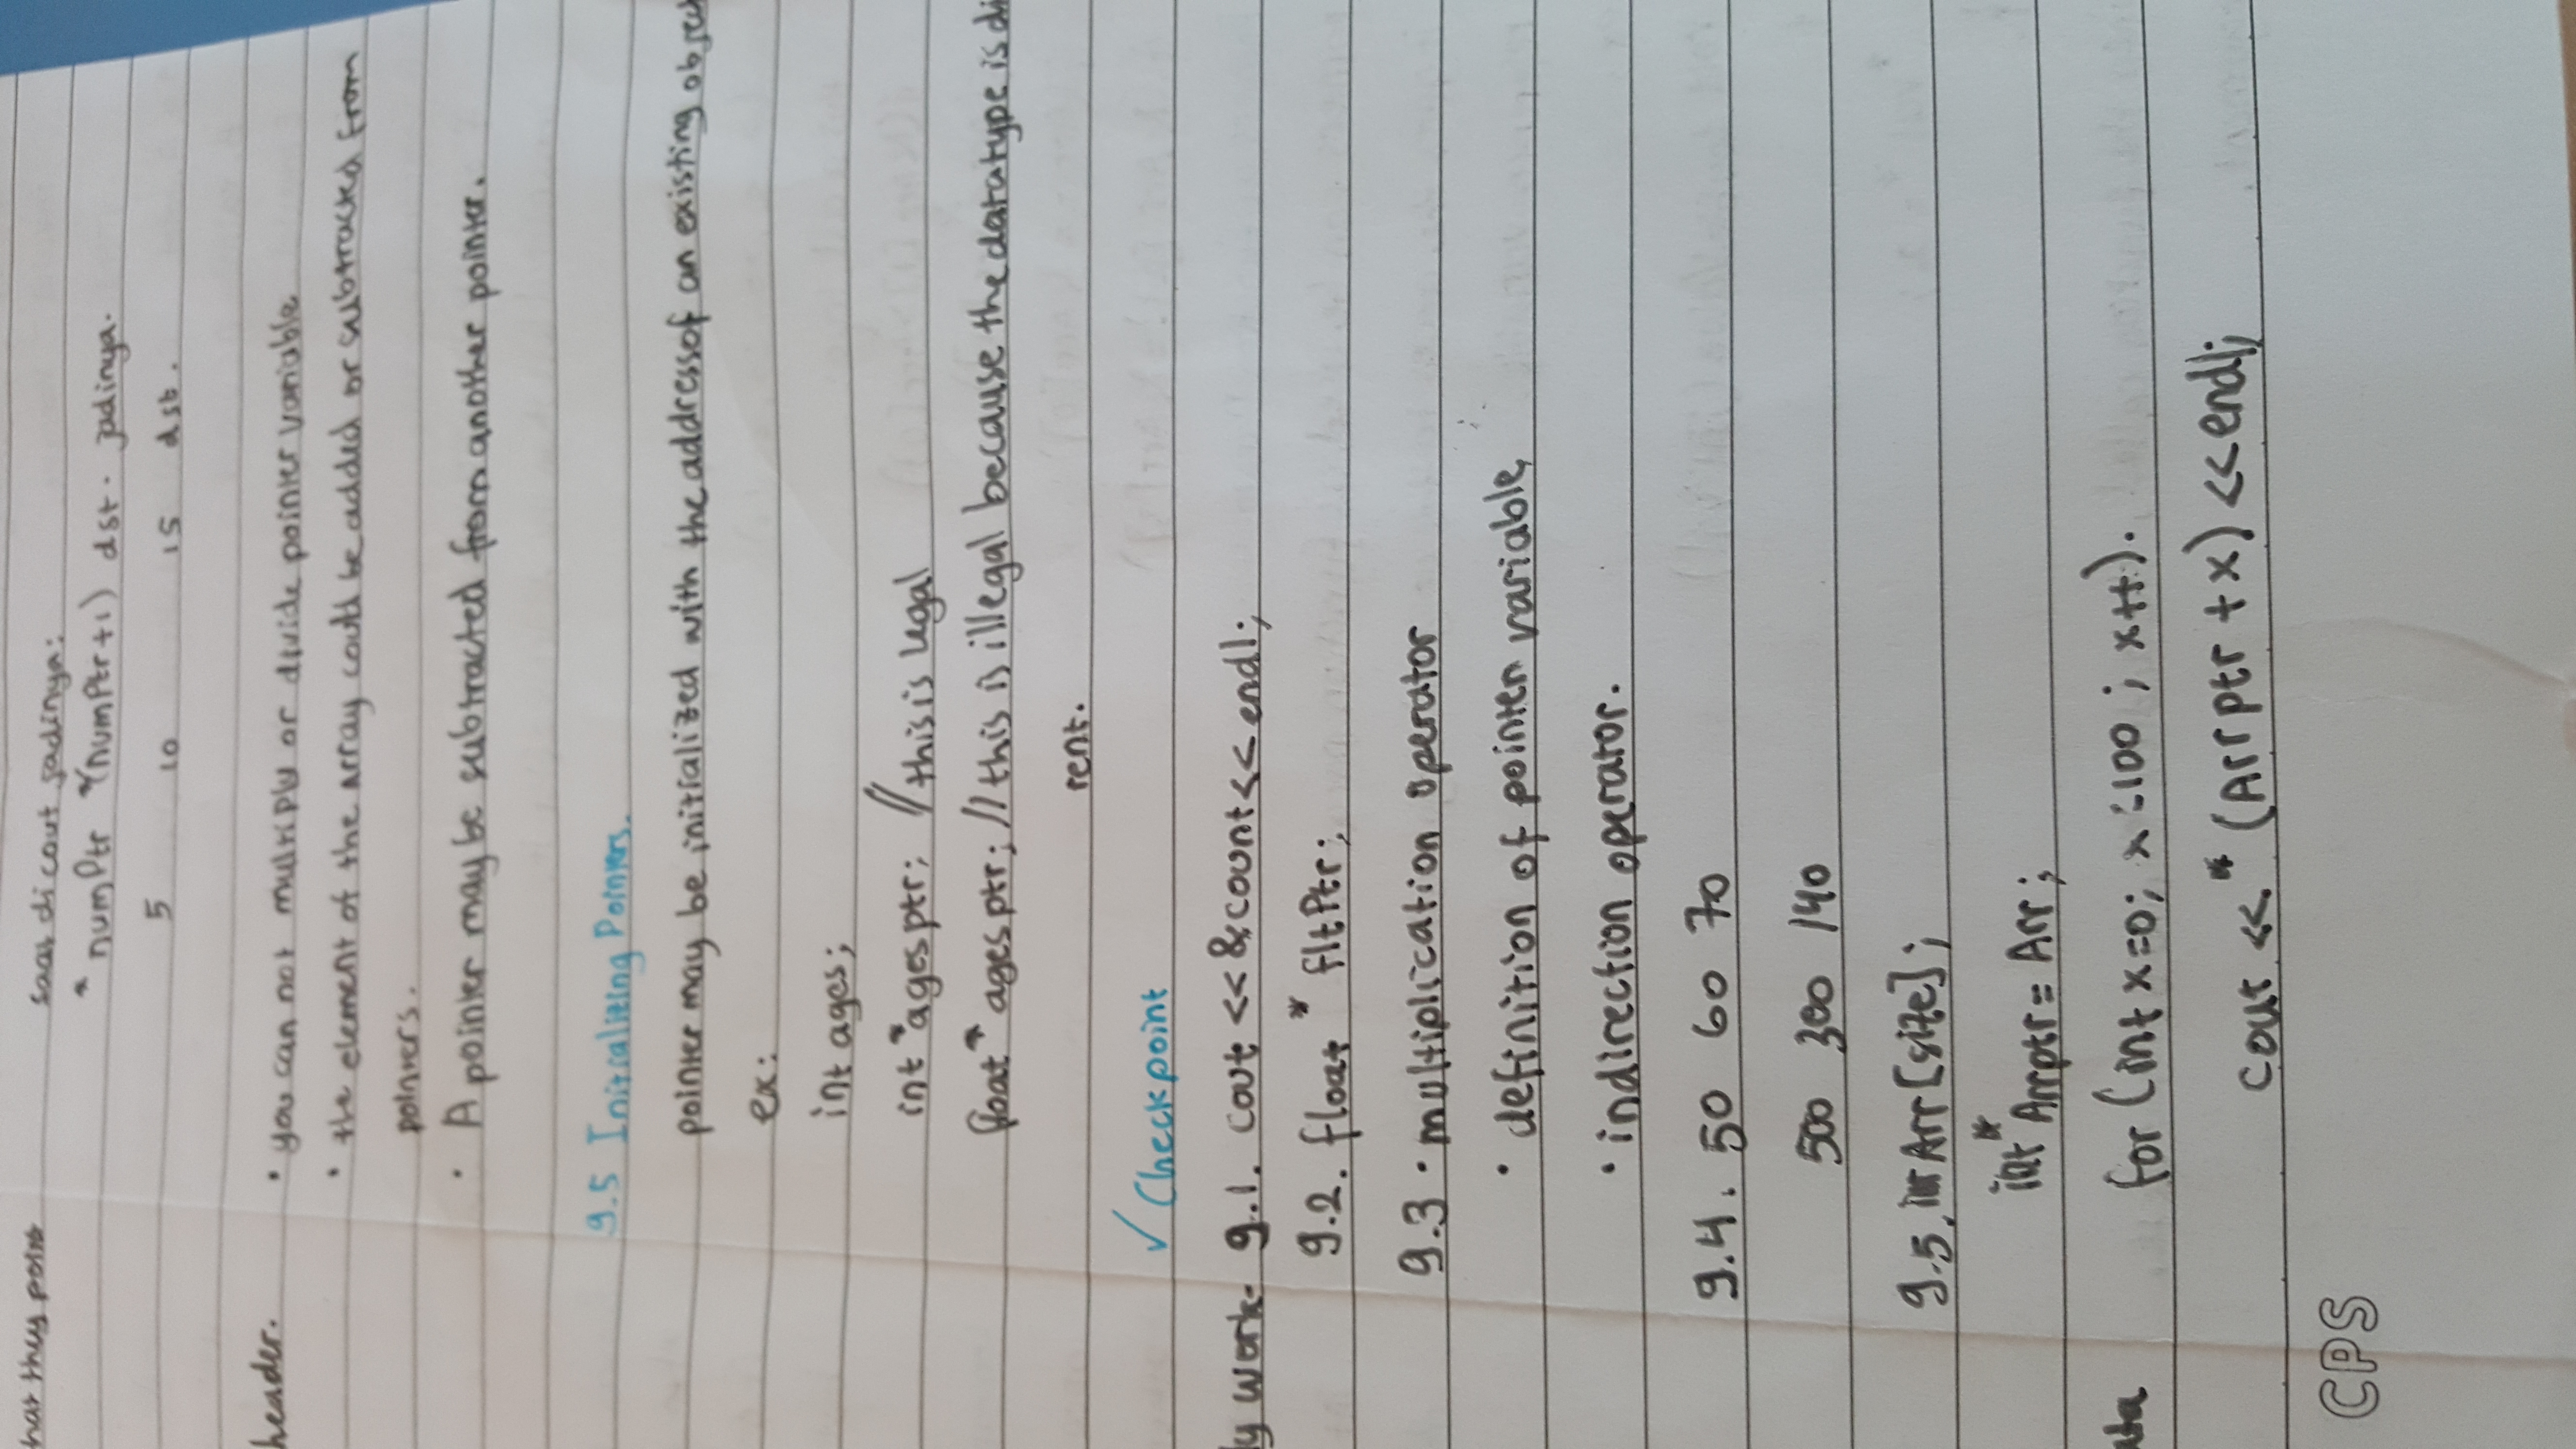 hat they point
saat di cout jadinya:
* numPtr *(numPtr+1) dst. jadinya.
5 10 15 dst.
header.
• you can not multiply or divide pointer variable
• the element of the array could be added or subtracted from
pointers.
• A pointer may be subtracted from another pointer.
9.5 Initializing Pointers.
pointer may be initialized with the address of an existing objec
ex:
int ages;
int *agesptr; // this is legal
float * agesptr; // this is illegal because the datatype is di
rent.
✓ Checkpoint
ly work-
9.1. cout << &count << endl;
9.2. float * fltPtr;
9.3 • multiplication operator
• definition of pointer variable
• indirection operator.
9.4. 50 60 70
500 300 140
9.5. int Arr[size];
int* Arrptr = Arr;
ata
for (int x=0; x 100; x++).
cout << * (Arrptr + x) << endl;
CPS